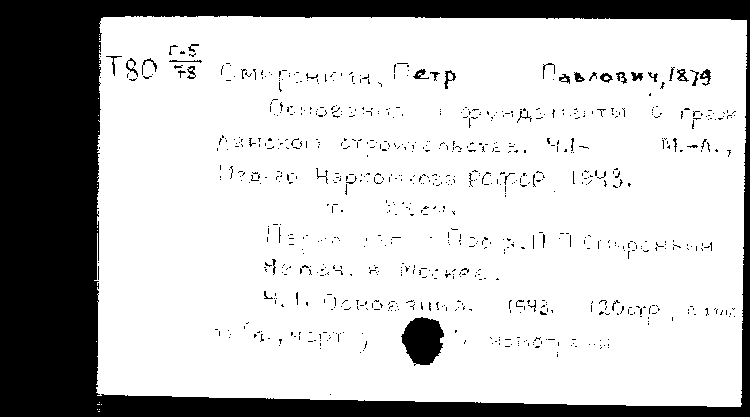 Т80 Г-5/78 Смиренкин, Петр Павлович, 1879
Основания и фундаменты в граж
данском строительстве. Ч.1- М.-Л.,
Изд-во Наркомхоза РСФСР, 1943.
т. см.
Перед загл.: Проф. П.П. Смиренкин
Напеч. в Москве.
Ч.1. Основания. 1943. 120 стр., с
черт.)